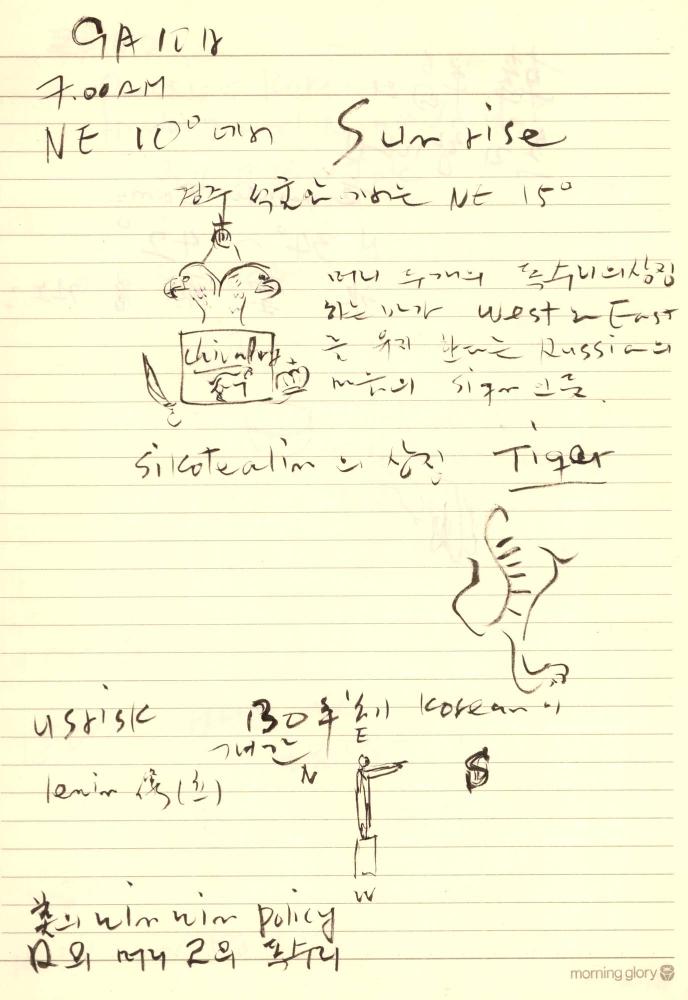 7.00AM
NE 10° 에서 Sunrise
경주 석굴암 NE 15°
머리 두개의 독수리의상징
하는 바가 West 와 East
를 유지 한다는 Russia의
sign 인듯.
chivalry
sikotealin 의 상징 Tiger
usrisk 130 Korean 이
개간
E
N
lenin 像
$
W
의 win win policy
머리 2의 독수리
morning glory